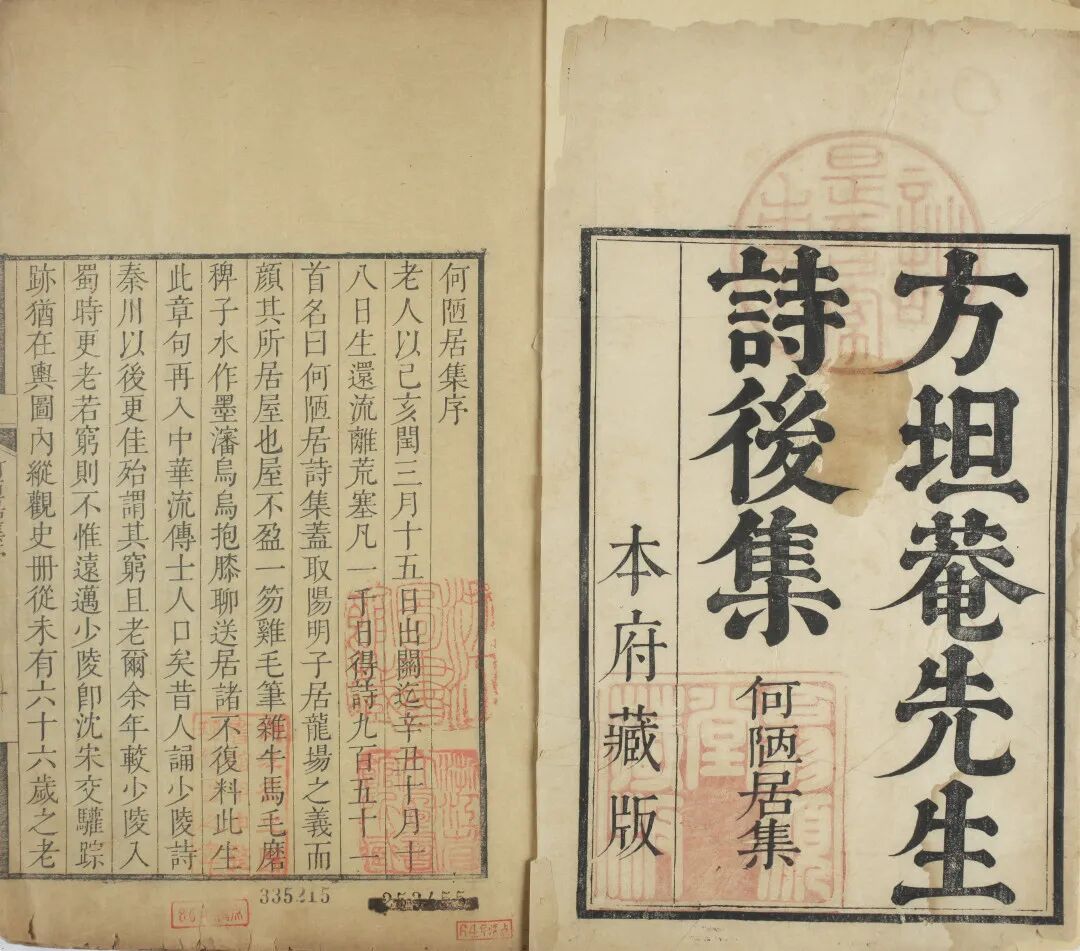 方坦菴先生
詩後集
何陋居集
本府藏版
何陋居集序
老人以己亥閏三月十五日出關迄辛丑十月十
八日生還流離荒塞凡一千日得詩九百五十一
首名曰何陋居詩集蓋取陽明子居龍場之義而
顏其所居屋也屋不盈一笏雞毛筆雜牛馬毛磨
稗子水作墨瀋烏烏抱膝聊送居諸不復料此生
此章句再入中華流傳士人口矣昔人誦少陵詩
秦川以後更佳殆謂其窮且老爾余年較少陵入
蜀時更老若窮則不惟遠邁少陵卽沈宋交驩踪
跡猶在輿圖內縱觀史冊從未有六十六歲之老
335215